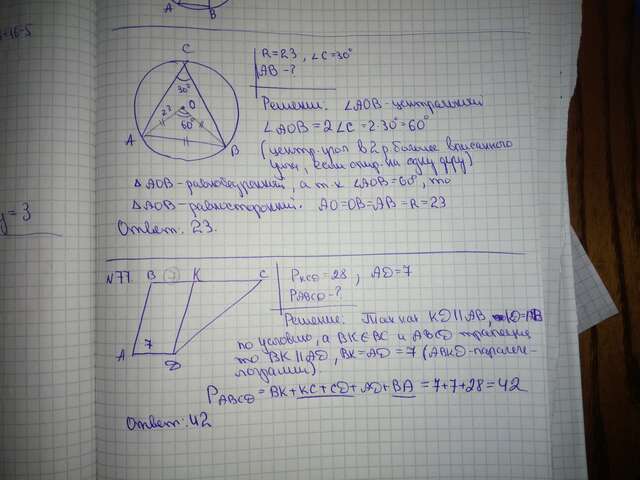 A B
-16-5
y = 3
C
30°
23
O
60°
A
B
R = 23, ∠C = 30°
AB - ?
Решение: ∠AOB - центральный
∠AOB = 2∠C = 2·30° = 60°
(центр. угол в 2 р. больше вписанного
угла, если опир. на одну дугу)
△ AOB - равнобедренный, а т.к ∠AOB = 60°, то
△ AOB - равносторонний. AO = OB = AB = R = 23
Ответ: 23.
N 77
B K C
A 7 D
P KCD = 28, AD = 7
P ABCD - ?
Решение: Так как KD || AB,
по условию, а BK ∈ BC и ABCD трапеция
то BK || AD, BK = AD = 7 (ABKD - паралле-
лограмм).
P ABCD = BK + KC + CD + AD + BA = 7 + 7 + 28 = 42
Ответ: 42